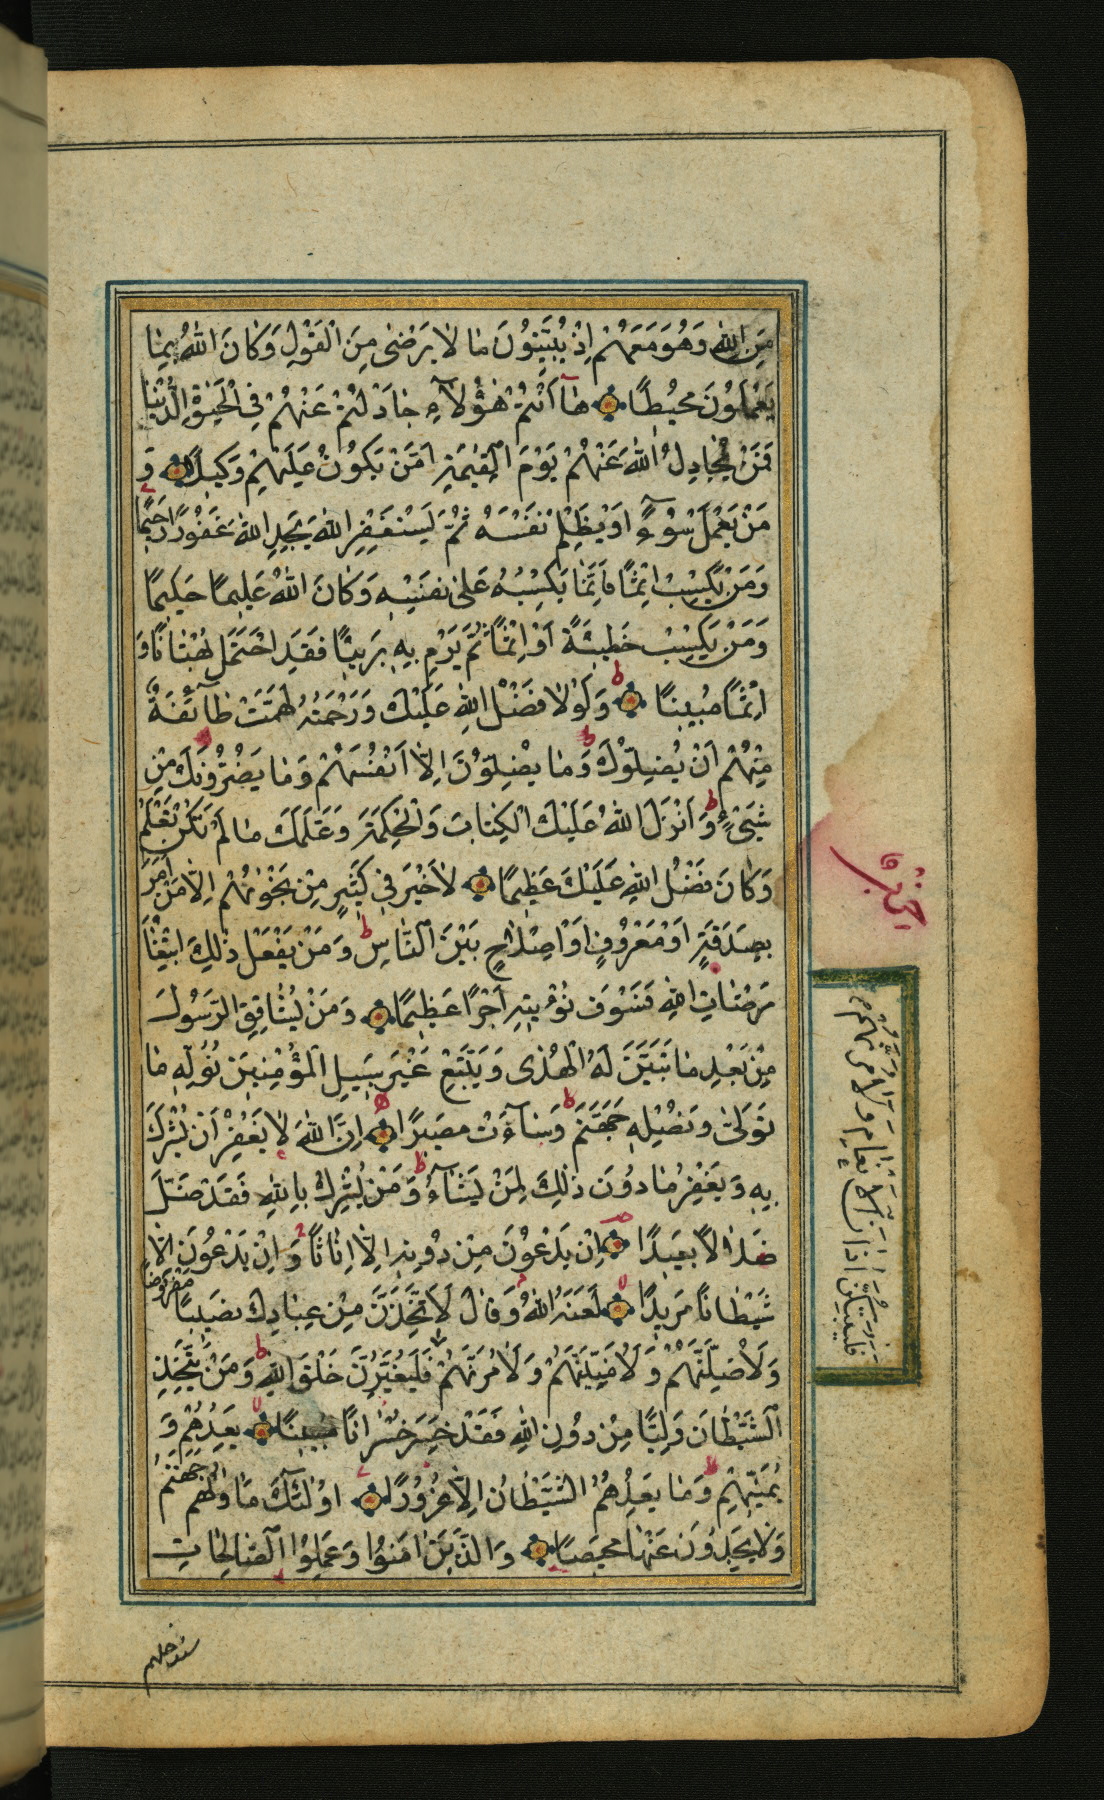 مِنَ اللهِ وَهُوَ مَعَهُمْ اِذْ يُبَيِّتُونَ مَا لَا يَرْضٰى مِنَ الْقَوْلِ وَكَانَ اللهُ بِمَا
يَعْمَلُونَ مُحِيطًا هَآ اَنْتُمْ هٰٓؤُلَآءِ جَادَلْتُمْ عَنْهُمْ فِي الْحَيٰوةِ الدُّنْيَا
فَمَنْ يُجَادِلُ اللهَ عَنْهُمْ يَوْمَ الْقِيٰمَةِ اَمْ مَنْ يَكُونُ عَلَيْهِمْ وَكِيلًا وَ
مَنْ يَعْمَلْ سُوٓءًا اَوْ يَظْلِمْ نَفْسَهُ ثُمَّ يَسْتَغْفِرِ اللهَ يَجِدِ اللهَ غَفُورًا رَحِيمًا
وَمَنْ يَكْسِبْ اِثْمًا فَاِنَّمَا يَكْسِبُهُ عَلٰى نَفْسِهِ وَكَانَ اللهُ عَلِيمًا حَكِيمًا
وَمَنْ يَكْسِبْ خَطِيئَةً اَوْ اِثْمًا ثُمَّ يَرْمِ بِهِ بَرِيئًا فَقَدِ احْتَمَلَ بُهْتَانًا وَ
اِثْمًا مُبِينًا وَلَوْلَا فَضْلُ اللهِ عَلَيْكَ وَرَحْمَتُهُ لَهَمَّتْ طَآئِفَةٌ
مِنْهُمْ اَنْ يُضِلُّوكَ وَمَا يُضِلُّونَ اِلَّا اَنْفُسَهُمْ وَمَا يَضُرُّونَكَ مِنْ
شَيْءٍ وَاَنْزَلَ اللهُ عَلَيْكَ الْكِتَابَ وَالْحِكْمَةَ وَعَلَّمَكَ مَا لَمْ تَكُنْ تَعْلَمُ
وَكَانَ فَضْلُ اللهِ عَلَيْكَ عَظِيمًا لَا خَيْرَ فِي كَثِيرٍ مِنْ نَجْوٰيهُمْ اِلَّا مَنْ اَمَرَ
بِصَدَقَةٍ اَوْ مَعْرُوفٍ اَوْ اِصْلَاحٍ بَيْنَ النَّاسِ وَمَنْ يَفْعَلْ ذٰلِكَ ابْتِغَآءَ
مَرْضَاتِ اللهِ فَسَوْفَ نُؤْتِيهِ اَجْرًا عَظِيمًا وَمَنْ يُشَاقِقِ الرَّسُولَ
مِنْ بَعْدِ مَا تَبَيَّنَ لَهُ الْهُدٰى وَيَتَّبِعْ غَيْرَ سَبِيلِ الْمُؤْمِنِينَ نُوَلِّهِ مَا
تَوَلّٰى وَنُصْلِهِ جَهَنَّمَ وَسَآءَتْ مَصِيرًا اِنَّ اللهَ لَا يَغْفِرُ اَنْ يُشْرَكَ
بِهِ وَيَغْفِرُ مَا دُونَ ذٰلِكَ لِمَنْ يَشَآءُ وَمَنْ يُشْرِكْ بِاللهِ فَقَدْ ضَلَّ
ضَلَالًا بَعِيدًا اِنْ يَدْعُونَ مِنْ دُونِهِ اِلَّا اِنَاثًا وَاِنْ يَدْعُونَ اِلَّا
شَيْطَانًا مَرِيدًا لَعَنَهُ اللهُ وَقَالَ لَاَتَّخِذَنَّ مِنْ عِبَادِكَ نَصِيبًا مَفْرُوضًا
وَلَاُضِلَّنَّهُمْ وَلَاُمَنِّيَنَّهُمْ وَلَاٰمُرَنَّهُمْ فَلَيُغَيِّرُنَّ خَلْقَ اللهِ وَمَنْ يَتَّخِذِ
الشَّيْطَانَ وَلِيًّا مِنْ دُونِ اللهِ فَقَدْ خَسِرَ خُسْرَانًا مُبِينًا يَعِدُهُمْ وَ
يُمَنِّيهِمْ وَمَا يَعِدُهُمُ الشَّيْطَانُ اِلَّا غُرُورًا اُولٰٓئِكَ مَاْوٰيهُمْ جَهَنَّمُ
وَلَا يَجِدُونَ عَنْهَا مَحِيصًا وَالَّذِينَ اٰمَنُوا وَعَمِلُوا الصَّالِحَاتِ
فَلَيُبَتِّكُنَّ اٰذَانَ الْاَنْعَامِ وَلَاٰمُرَنَّهُمْ
سندخلهم